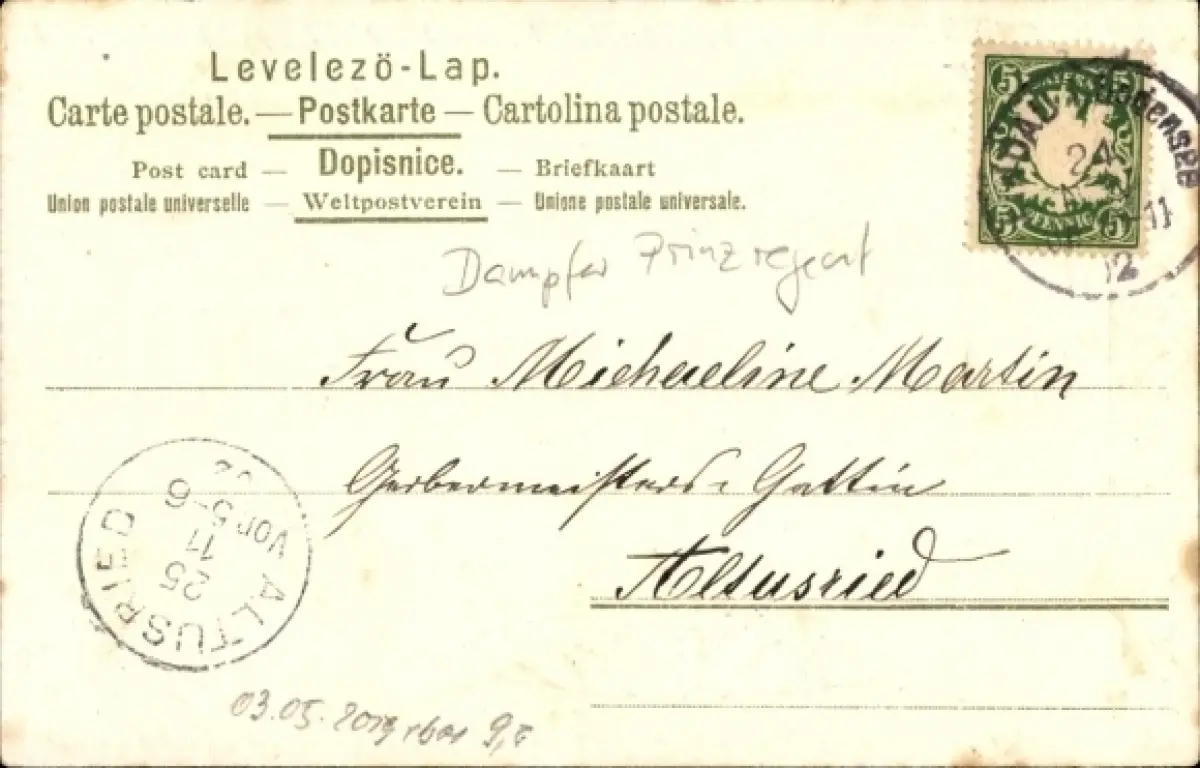 Levelező-Lap.
Carte postale. — Postkarte — Cartolina postale.
Post card — Dopisnice. — Briefkaart
Union postale universelle — Weltpostverein — Unione postale universale.
5 5
PFENNIG
5 5
LINDAU Bodensee
24
11
12
Dampfer Prinzregent
Frau Michaeline Martin
Gerbermeisters-Gattin
Altusried
ALTUSRIED
25
11
Vor 5-6
02
03.05.2019